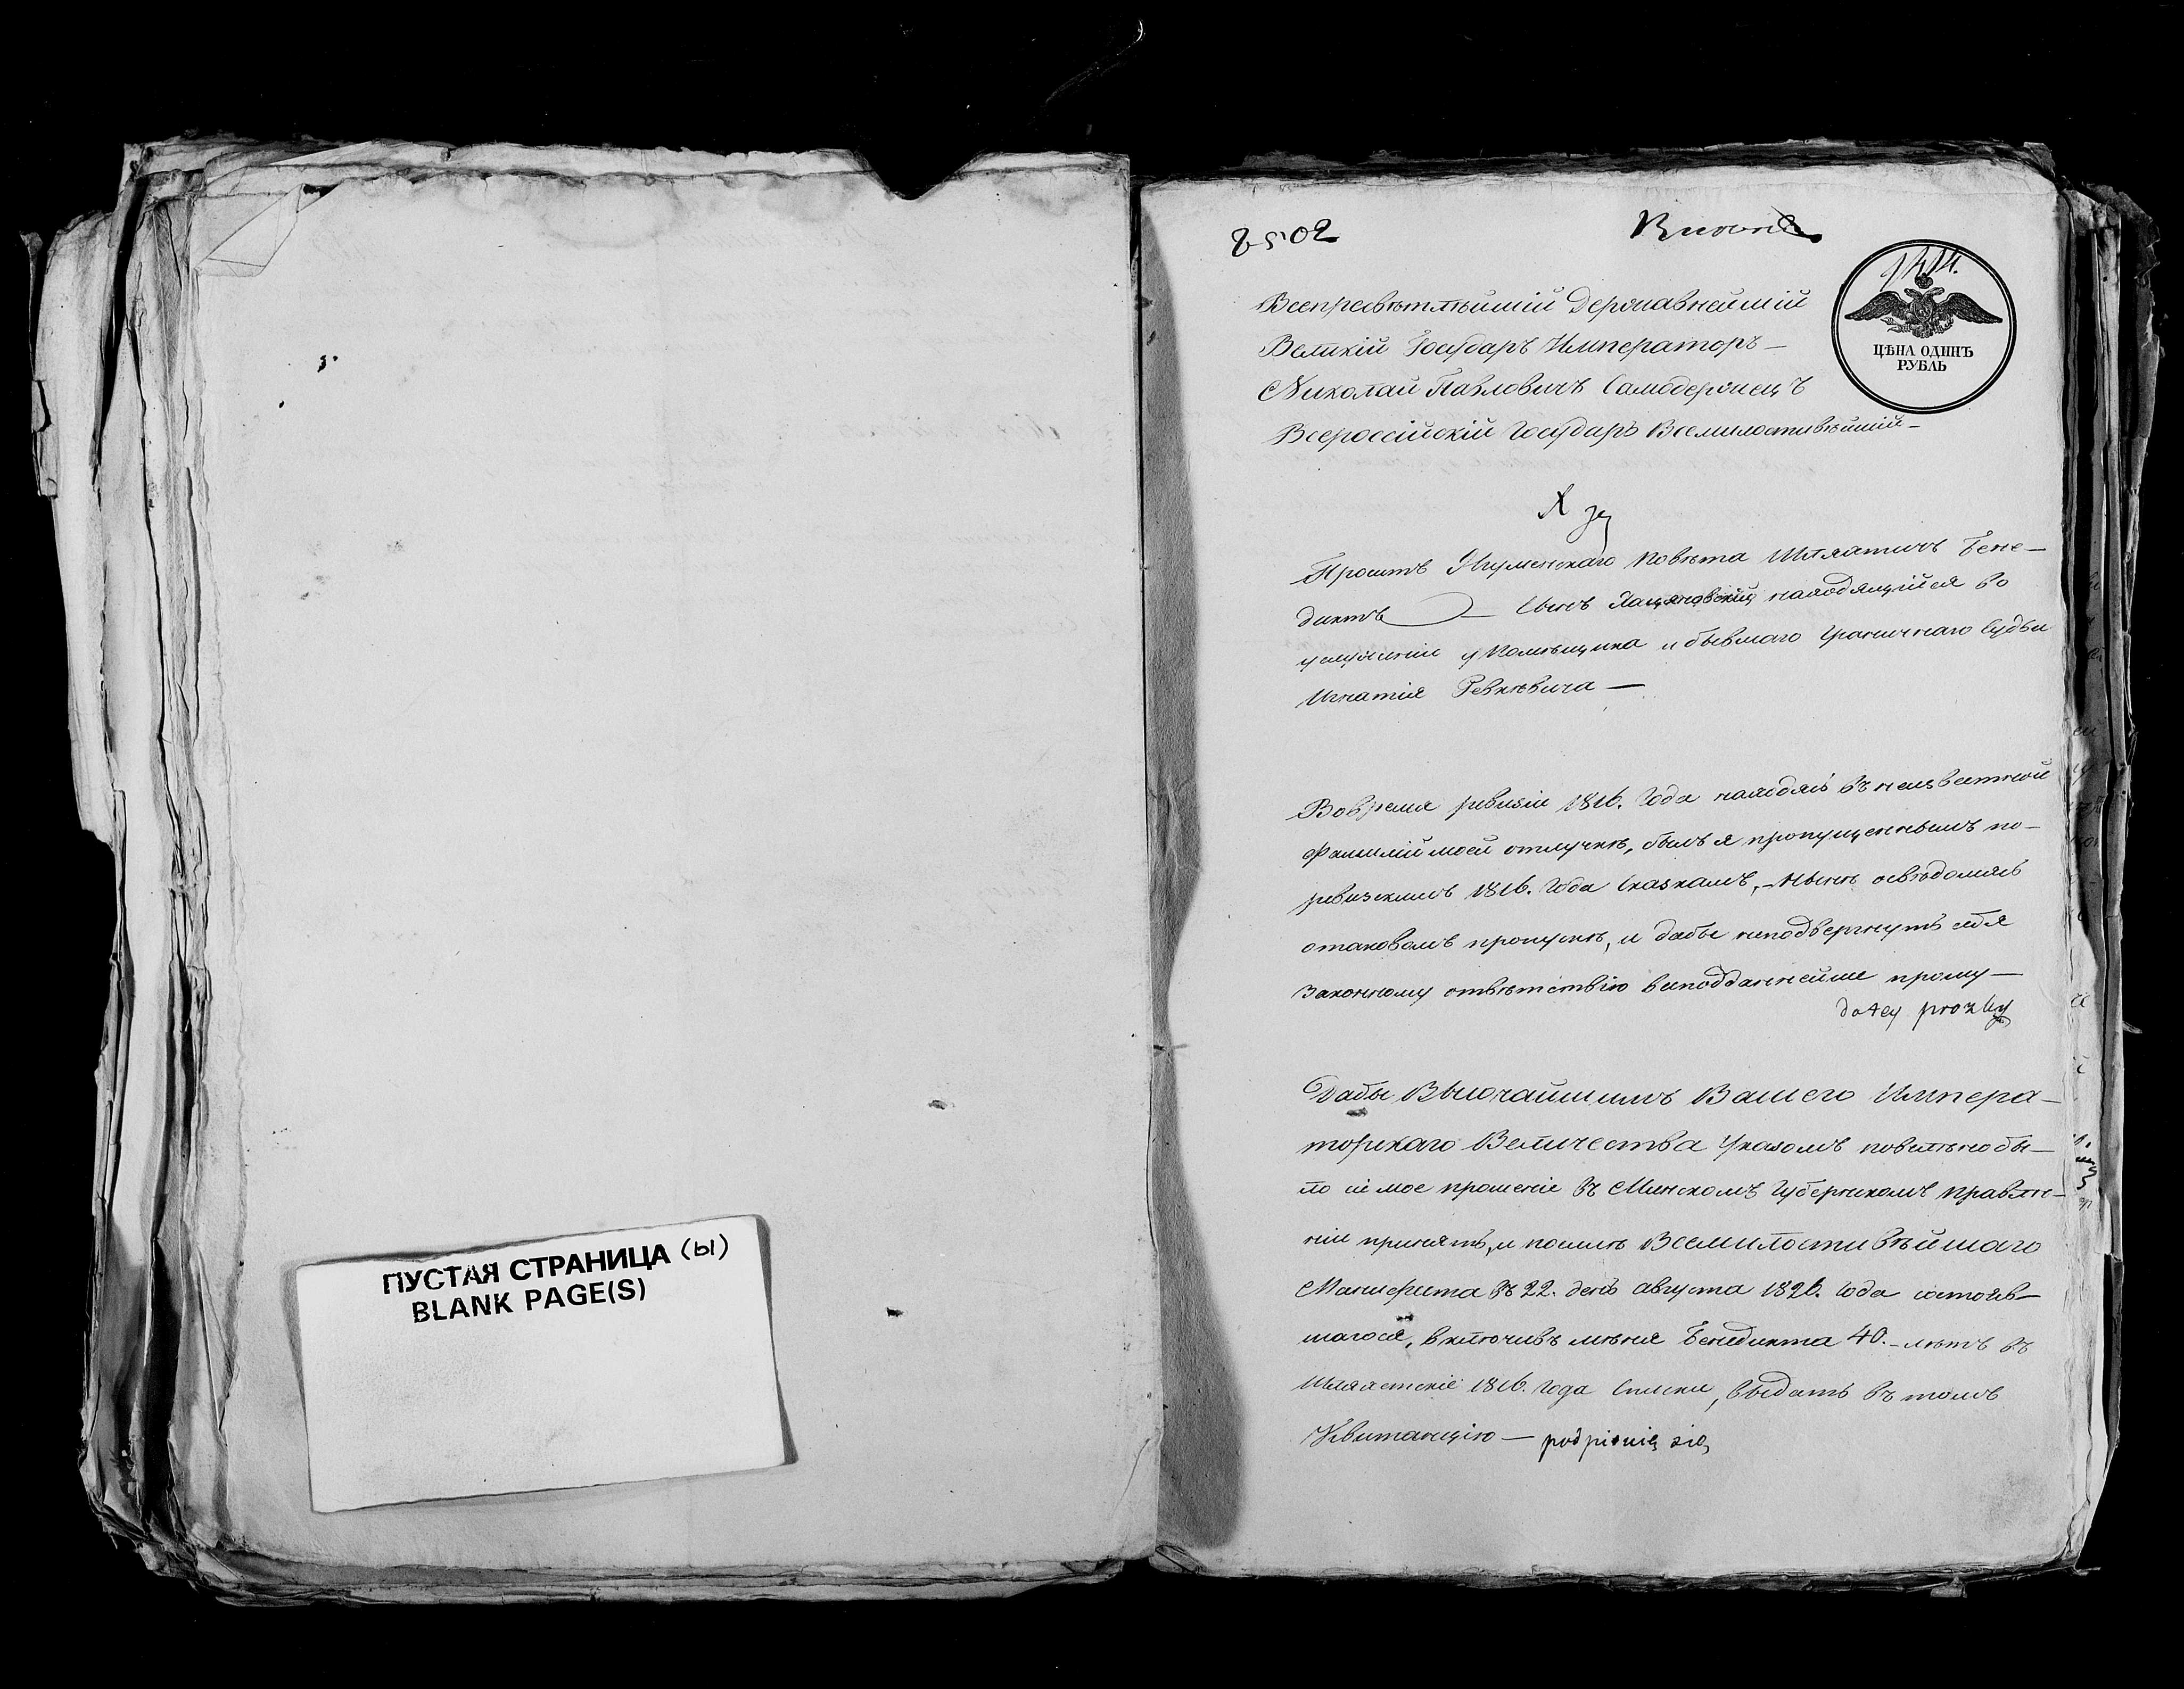 ПУСТАЯ СТРАНИЦА (ы)
BLANK PAGE(S)
8502
1414.
ЦѢНА ОДИНЪ
РУБЛЬ
Всепресвѣтлѣйшій Державнейшій
Великій Государь Императоръ —
Николай Павловичъ Самодержецъ
Всероссійскій Государь Всемилостивѣйшій —
Проситъ Игуменскаго Повѣта Шляхтичъ Бене—
диктъ — Сынъ находящійся во
услуженіи у Помѣщика и бывшаго Граничнаго Судьи
Игнатія Ревкѣвича —
Вовремя ревизіи 1816. Года находясь въ неизвестной
Фамиліи моей отлучкѣ, былъ я пропущеннымъ по—
ревизскимъ 1816. Года Сказкамъ, — Нынѣ освѣдомясь
отаковомъ пропускѣ, и дабы неподвергнуть себя
Законному отвѣтствію вѣрноподданнейше прошу —
do tey prozby
Дабы Высочайшимъ Вашего Импера—
торскаго Величества Указомъ повелѣно бы—
ло сіе мое прошеніе въ Минскомъ Губернскомъ Правлѣ—
ніи принять, и посилѣ Всемилостивѣйшаго
Манифеста въ 22. день августа 1826. Года состояв—
шагося, включивъ мѣня Бенедикта 40. — лѣтъ въ
Шляхетскіе 1816. Года Списки, выдать въ томъ
Квитанцію — podpisuię się